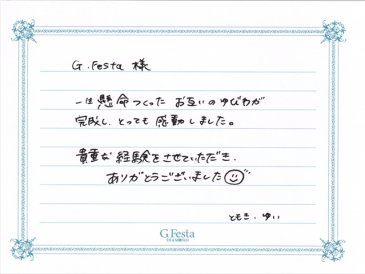 G.Festa 様
一生懸命つくった お互いのゆびわが
完成し、とっても感動しました。
貴重な経験をさせていただき、
ありがとうございました
ともき・ゆい
G.Festa